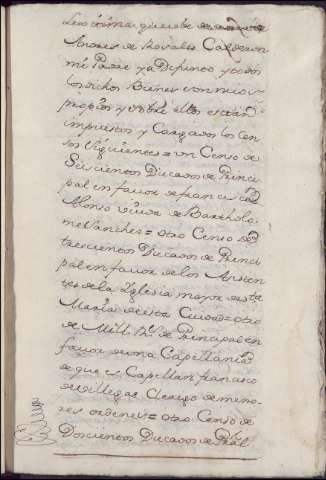 Lexitima que ube de
Andres de Rosales Calderon
mi Padre ya Difunto y todos
los dichos Bienes son mios
propios y sobre ellos estan
impuestos y Cargados los Cen
sos siguientes = un Censo de
Seiscientos Ducados de Princi
pal en favor de francisca
Alonso viuda de Bartholo
me Sanchez = otro Censo de
trescientos Ducados de Princi
pal en favor de los
de la Yglesia mayor de sta
Maria de esta Ciudad = otro
de Mill Ds de Principal en
favor de una Capellania
de que es Capellan francisco
de Villegas Clerigo de meno
res ordenes = otro Censo de
Doscientos Ducados de Prāl